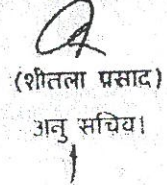 (शीतला प्रसाद)
अनु सचिव।